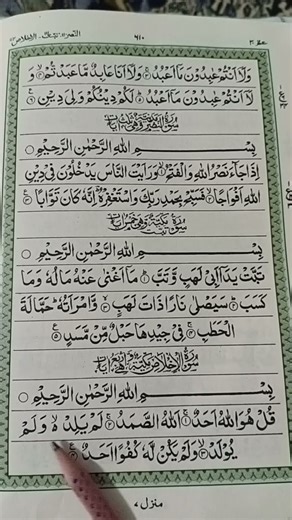 النصر ١١٠ تبت ١١١ الاخلاص ١١٢
٦١٠
عم ٣٠
وَلَآ اَنْتُمْ عٰبِدُوْنَ مَآ اَعْبُدُ ۚ وَلَآ اَنَا عَابِدٌ مَّا عَبَدْتُّمْ ۙ وَ
لَآ اَنْتُمْ عٰبِدُوْنَ مَآ اَعْبُدُ ؕ لَكُمْ دِيْنُكُمْ وَلِيَ دِيْنِ ۶
بِسْمِ اللهِ الرَّحْمٰنِ الرَّحِيْمِ
اِذَا جَآءَ نَصْرُ اللهِ وَالْفَتْحُ ۙ وَرَاَيْتَ النَّاسَ يَدْخُلُوْنَ فِيْ دِيْنِ
اللهِ اَفْوَاجًا ۙ فَسَبِّحْ بِحَمْدِ رَبِّكَ وَاسْتَغْفِرْهُ ؔ اِنَّهٗ كَانَ تَوَّابًا ۳
بِسْمِ اللهِ الرَّحْمٰنِ الرَّحِيْمِ
تَبَّتْ يَدَآ اَبِيْ لَهَبٍ وَّتَبَّ ؕ مَآ اَغْنٰى عَنْهُ مَالُهٗ وَمَا
كَسَبَ ؕ سَيَصْلٰى نَارًا ذَاتَ لَهَبٍ ۚ وَّامْرَاَتُهٗ ؕ حَمَّالَةَ
الْحَطَبِ ۚ فِيْ جِيْدِهَا حَبْلٌ مِّنْ مَّسَدٍ ۵
بِسْمِ اللهِ الرَّحْمٰنِ الرَّحِيْمِ
قُلْ هُوَ اللهُ اَحَدٌ ۚ اَللهُ الصَّمَدُ ۚ لَمْ يَلِدْ ۙ وَلَمْ
يُوْلَدْ ۙ وَلَمْ يَكُنْ لَّهٗ كُفُوًا اَحَدٌ
منزل ٧